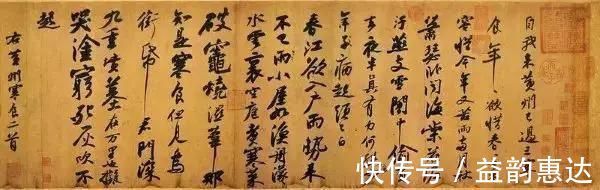 自我來黃州已過三寒
食年年欲惜春春去不
容惜今年又苦雨兩月秋
蕭瑟卧聞海棠花泥
汙燕支雪闇中偷負
去夜半真有力何殊少
年子病起頭已白
春江欲入戶雨勢來
不已雨小屋如漁舟濛濛
水雲裏空庖煑寒菜
破竈燒濕葦那
知是寒食但見烏
銜帋君門深
九重墳墓在万里也擬
哭塗窮死灰吹不
起
右黃州寒食二首
快传号/益韵惠达